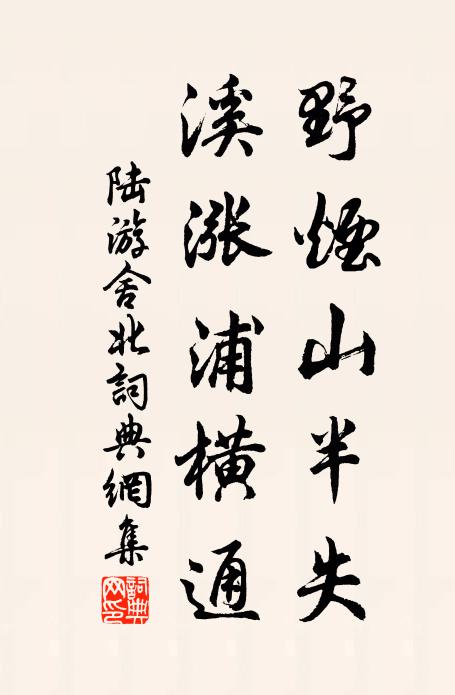 野煙山半失
溪漲浦橫通
陸游舍北詞典網集
詞典網印